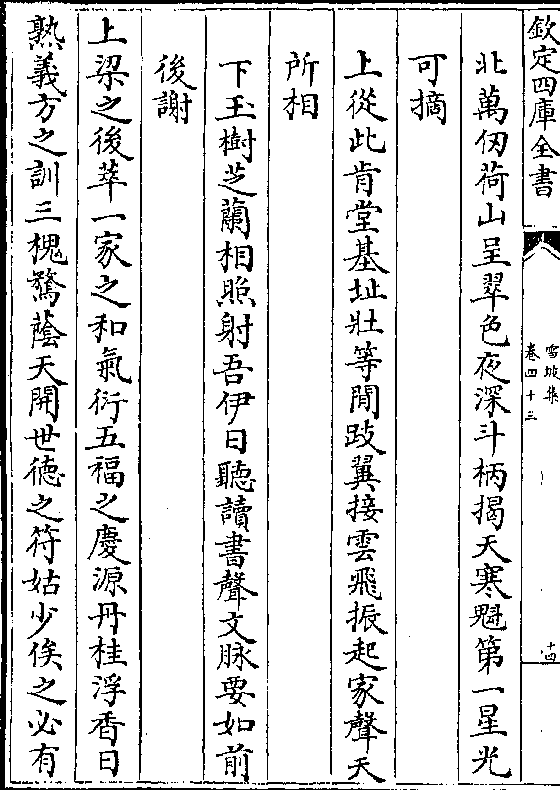 欽定四庫全書
雪坡集
卷四十三
十四
北萬仞荷山呈翠色夜深斗柄揭天寒魁第一星光
可摘
上從此肯堂基址壯等閒跂翼接雲飛振起家聲天
所相
下玉樹芝蘭相照射吾伊日聽讀書聲文脉要如前
後謝
上梁之後萃一家之和氣衍五福之慶源丹桂浮香日
熟義方之訓三槐驁蔭天開世德之符姑少俟之必有